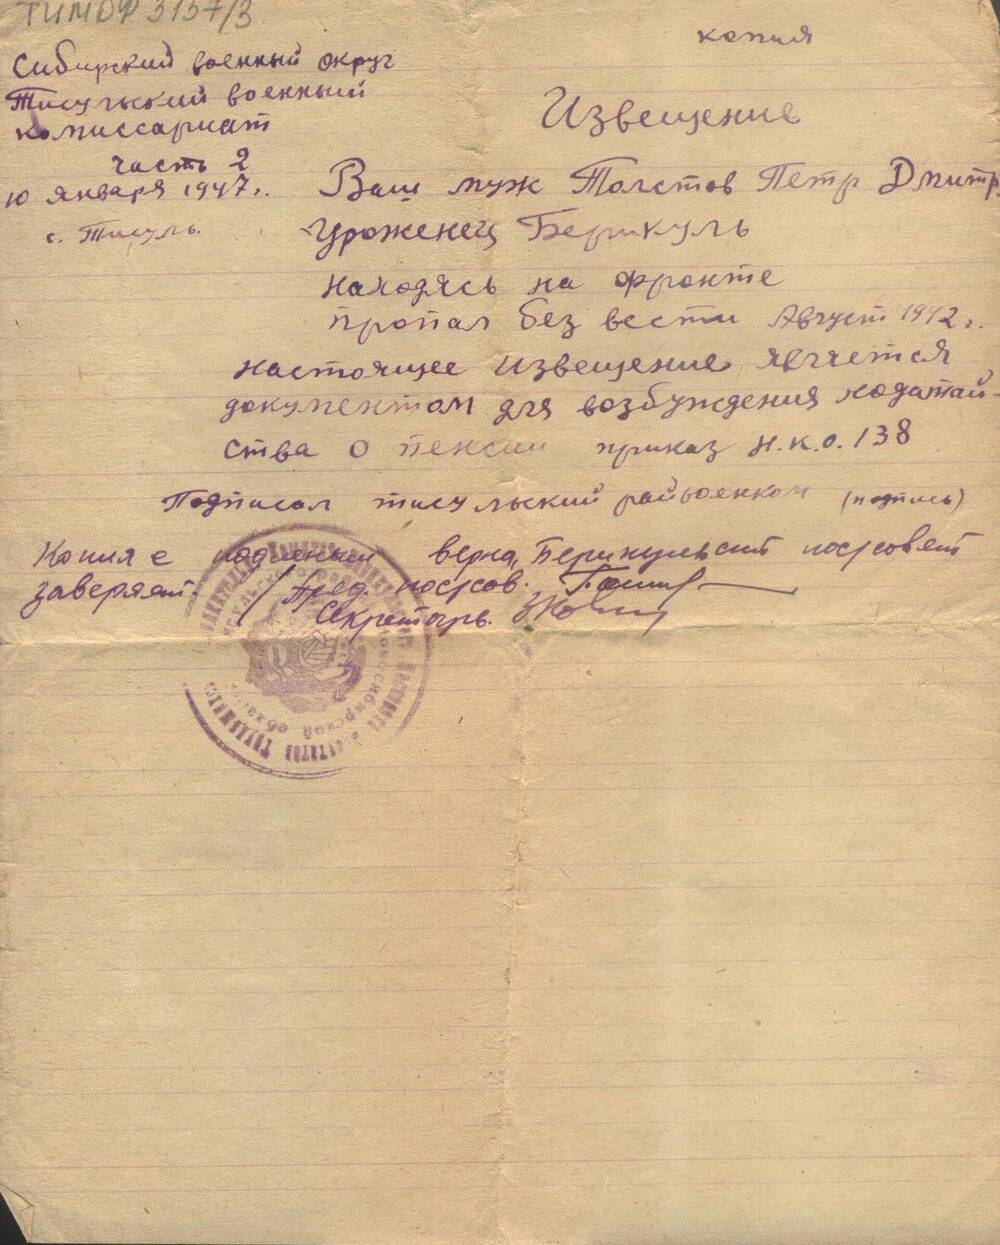 ТИМОФ 3157/3
копия
Сибирский военный округ
Тисульский военный
комиссариат
часть 2
10 января 1947 г.
с. Тисуль.
Извещение
Ваш муж Толстов Петр Дмитр.
Уроженец Берикуль
находясь на фронте
пропал без вести Август 1942 г.
настоящее извещение является
документом для возбуждения ходатай-
ства о пенсии приказ Н.К.О. 138
Подписал тисульский райвоенком (подпись)
Копия с подлиным верна, Берикульский поссовет
заверяет. Пред. поссов.
Секретарь.
Новосибирской области
депутатов трудящихся